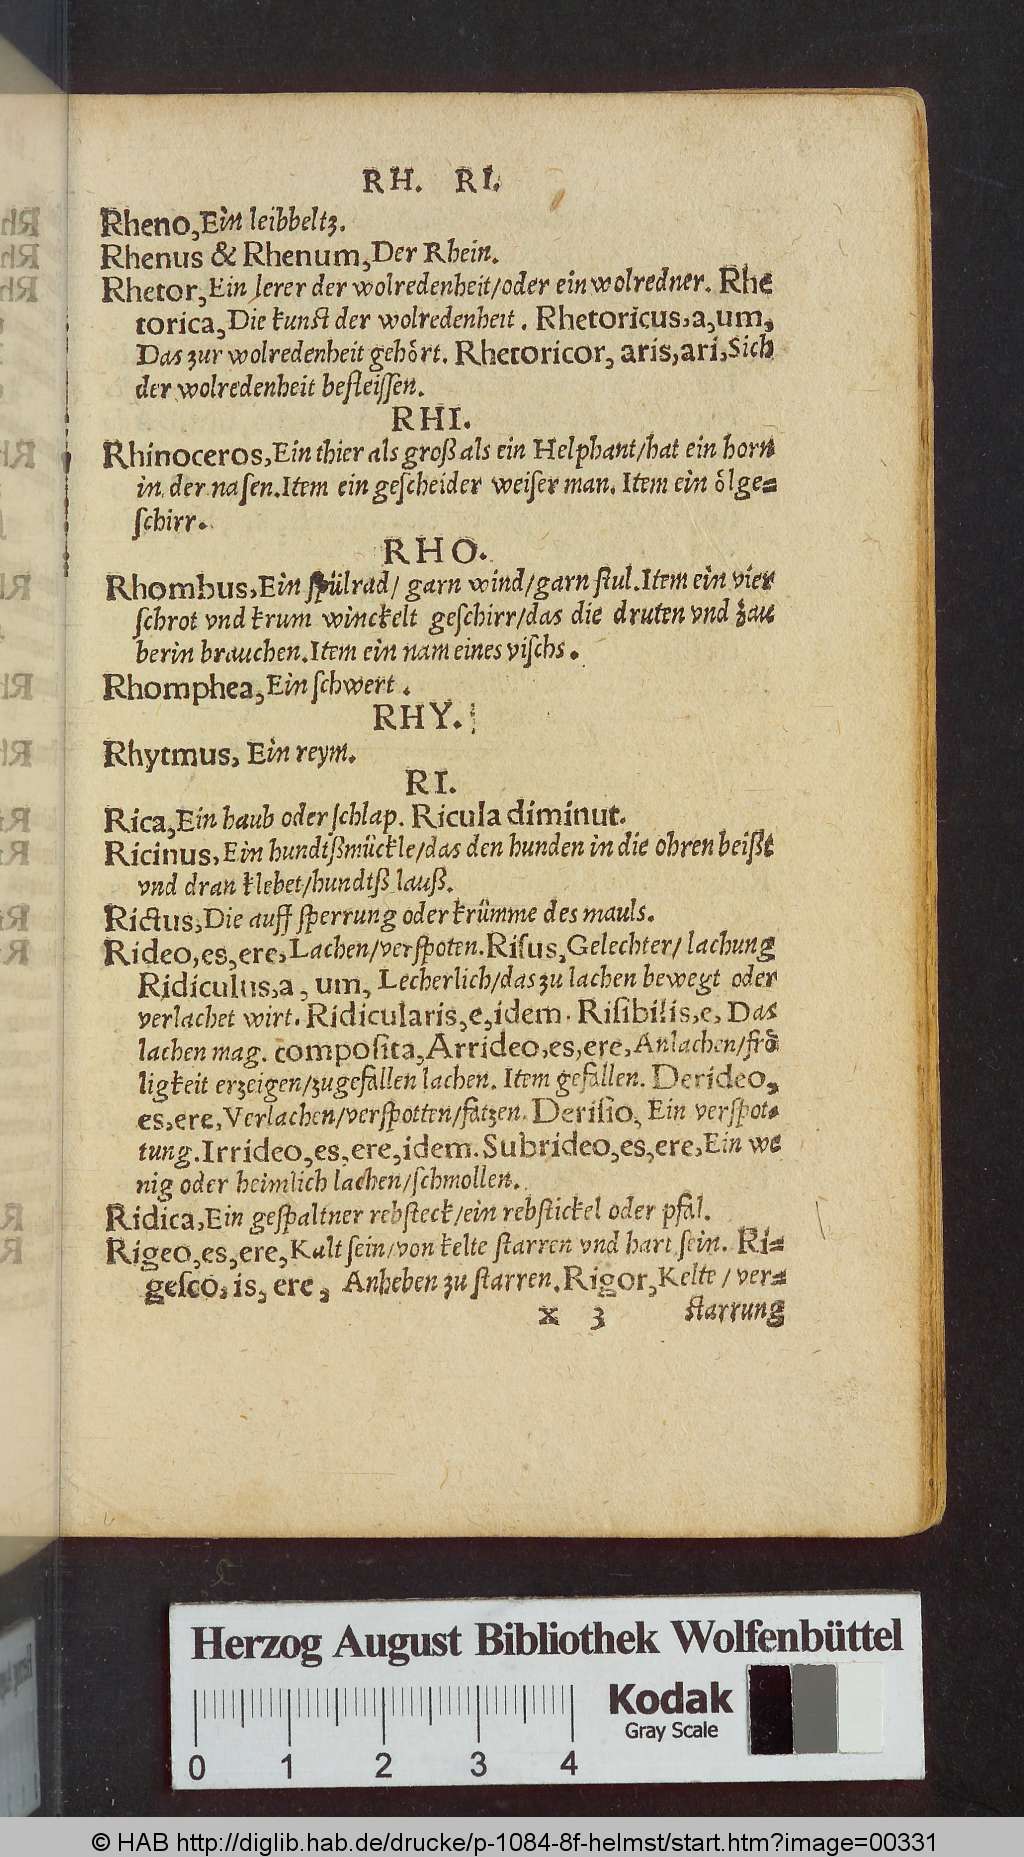 RH. RI.
Rheno, Ein leibbeltz.
Rhenus & Rhenum, Der Rhein.
Rhetor, Ein lerer der wolredenheit/oder ein wolredner. Rhe
torica, Die kunſt der wolredenheit. Rhetoricus, a, um,
Das zur wolredenheit gehoͤrt. Rhetoricor, aris, ari, Sich
der wolredenheit befleiſſen.
RHI.
Rhinoceros, Ein thier als groß als ein Helphant/hat ein horn
in der naſen. Item ein geſcheider weiſer man. Item ein oͤlge=
ſchirr.
RHO.
Rhombus, Ein ſpülrad/ garn wind/garn ſtul. Item ein vier
ſchrot vnd krum winckelt geſchirr/das die druten vnd zau
berin brauchen. Item ein nam eines viſchs.
Rhomphea, Ein ſchwert.
RHY.
Rhytmus, Ein reym.
RI.
Rica, Ein haub oder ſchlap. Ricula diminut.
Ricinus, Ein hundtßmückle/das den hunden in die ohren beißt
vnd dran klebet/hundtß lauß.
Rictus, Die auff ſperrung oder krümme des mauls.
Rideo, es, ere, Lachen/verſpoten. Riſus, Gelechter/ lachung
Ridiculus, a, um, Lecherlich/das zu lachen bewegt oder
verlachet wirt. Ridicularis, e, idem. Riſibilis, e, Das
lachen mag. compoſita, Arrideo, es, ere, Anlachen/froͤ
ligkeit erzeigen/zugefallen lachen. Item gefallen. Derideo,
es, ere, Verlachen/verſpotten/fatzen. Deriſio, Ein verſpot=
tung. Irrideo, es, ere, idem. Subrideo, es, ere, Ein we
nig oder heimlich lachen/ſchmollen.
Ridica, Ein geſpaltner rebſteck/ein rebſtickel oder pfal.
Rigeo, es, ere, Kalt ſein/von kelte ſtarren vnd hart ſein. Ri=
geſco, is, ere, Anheben zu ſtarren. Rigor, Kelte / ver=
x 3 ſtarrung
Herzog August Bibliothek Wolfenbüttel
Kodak
Gray Scale
0 1 2 3 4
© HAB http://diglib.hab.de/drucke/p-1084-8f-helmst/start.htm?image=00331